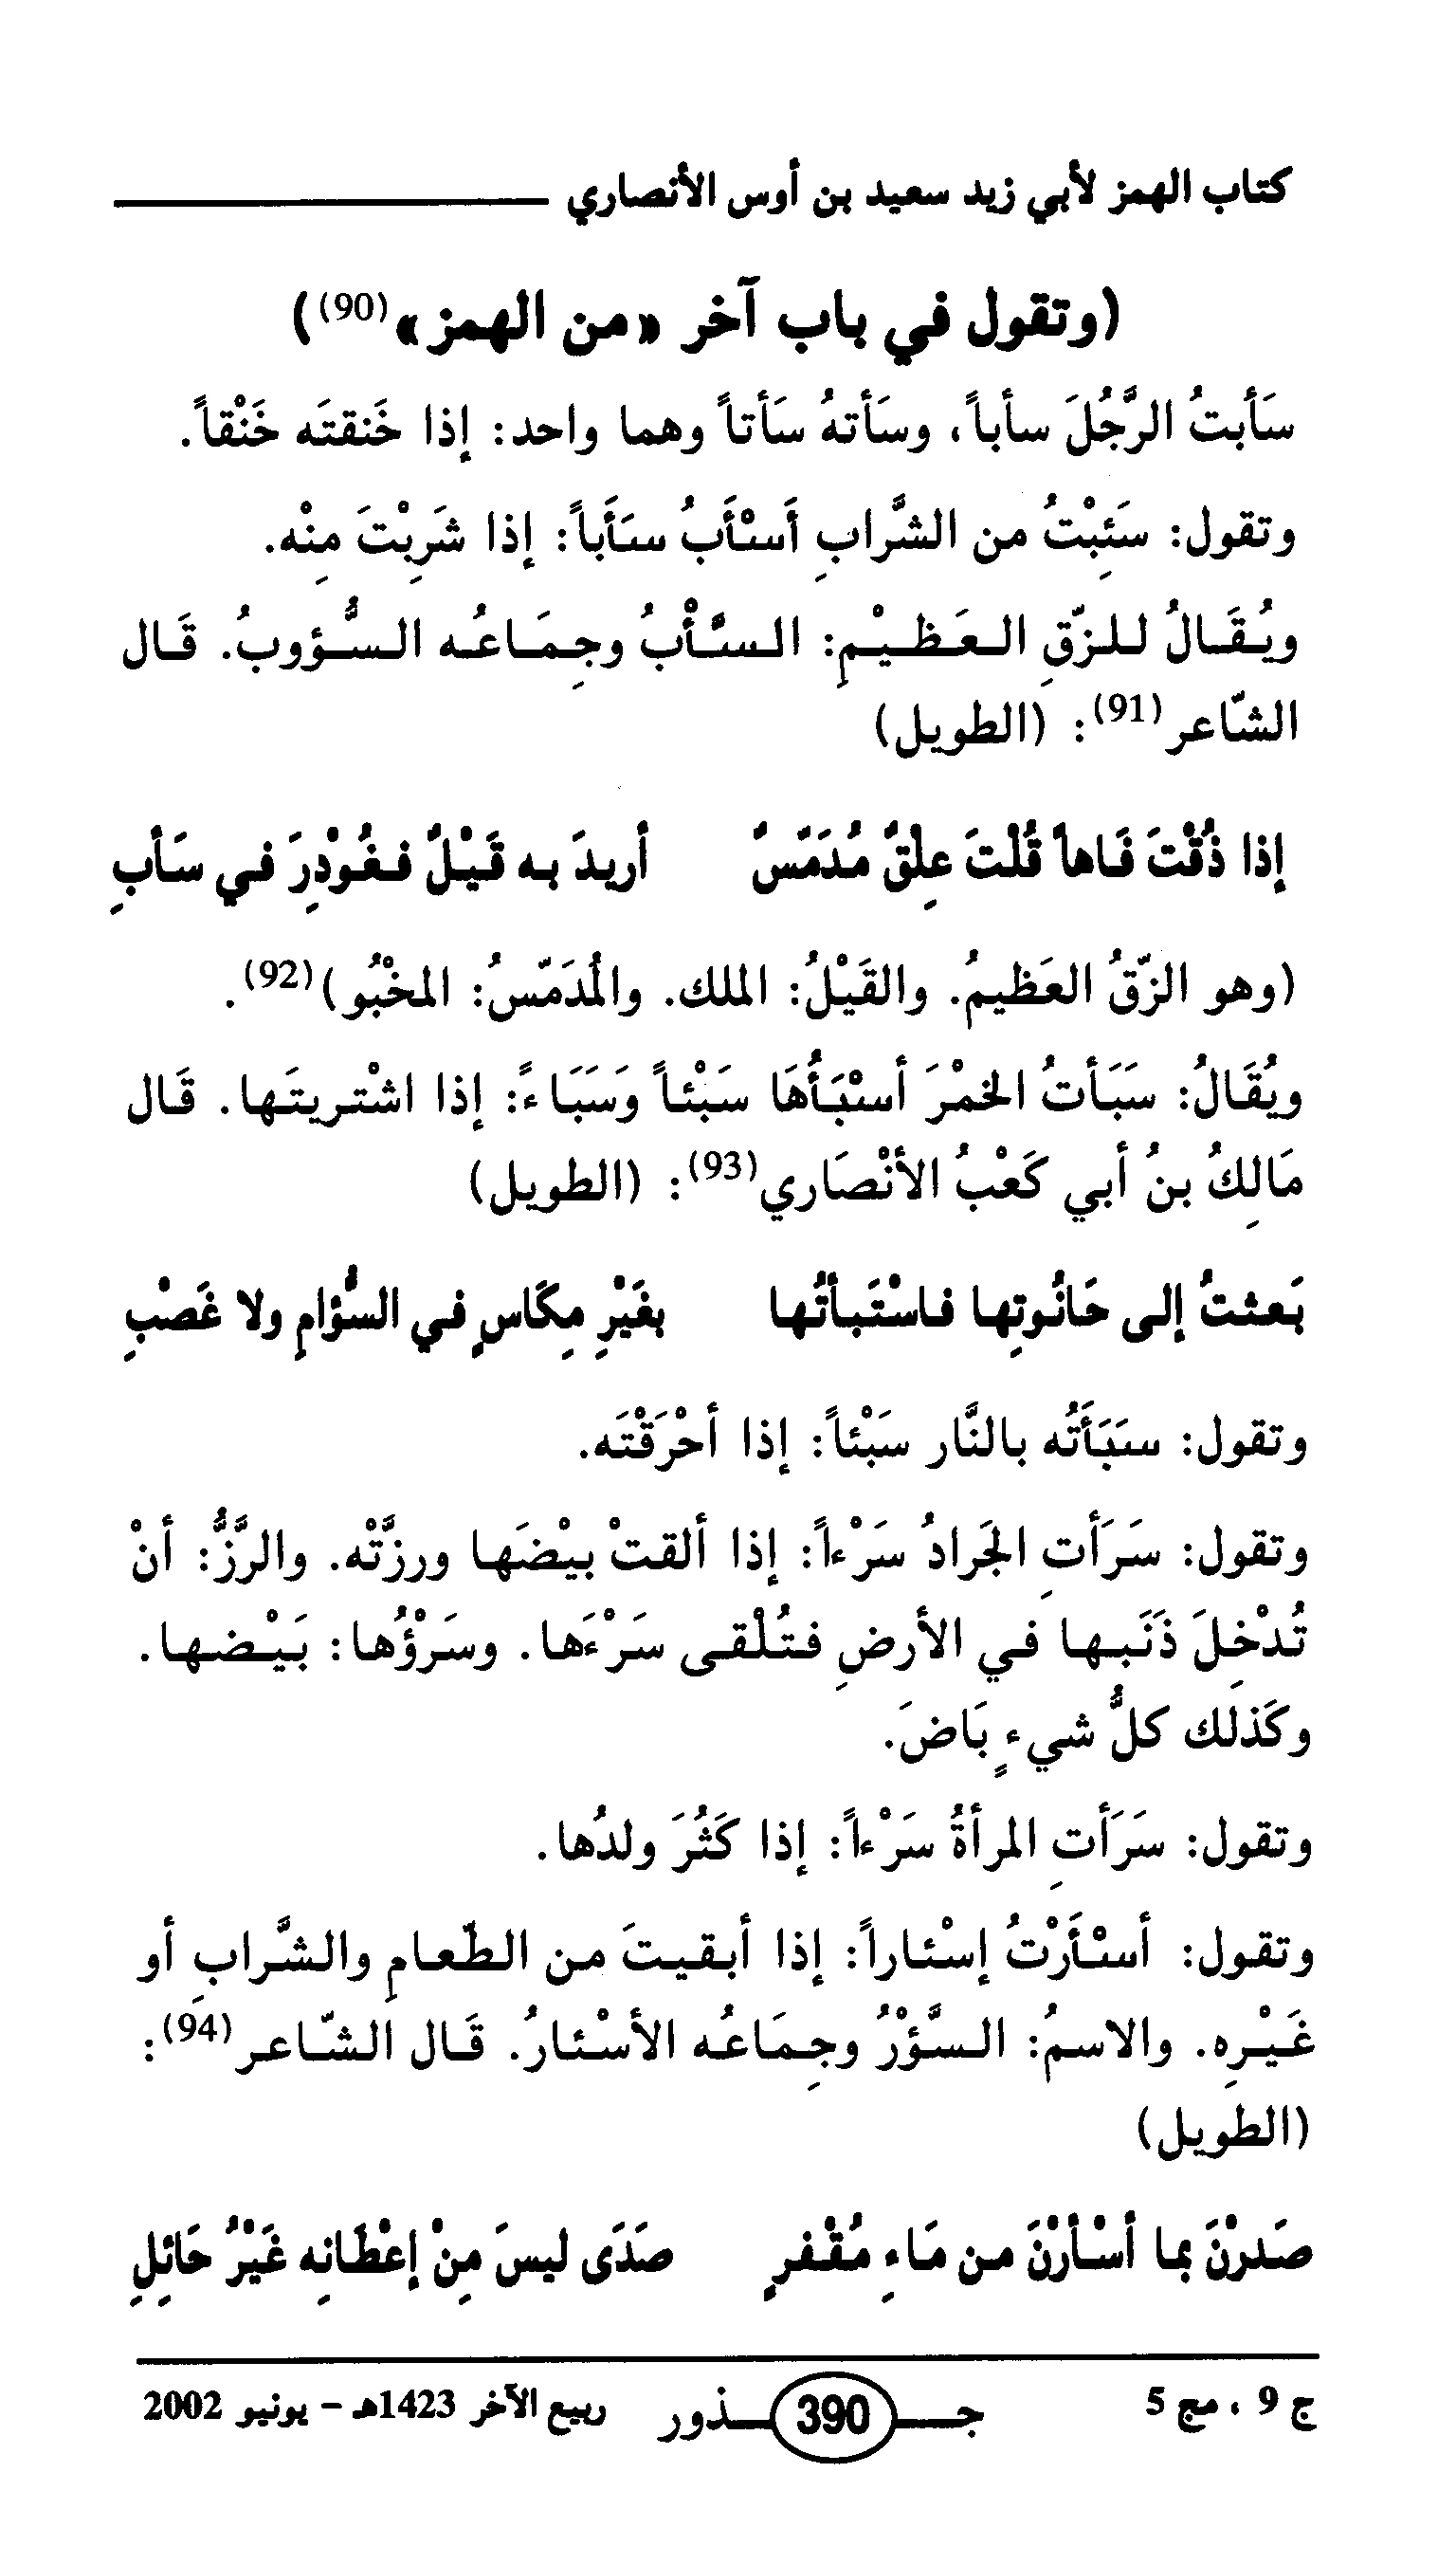 كتاب الهمز لأبي زيد سعيد بن أوس الأنصاري
(وتقول في باب آخر «من الهمز»(90))
سَأَبتُ الرَّجُلَ سأباً، وسَأتهُ سَأتاً وهما واحد: إذا خَنقتَه خَنْقاً.
وتقول: سَئِبْتُ من الشَّرابِ أَسْأَبُ سَأَباً: إذا شَرِبْتَ مِنْه.
ويُقَالُ للزّقِ العَظيْمِ: السَّأْبُ وجِمَاعُه السُّؤوبُ. قَال
الشّاعر(91): (الطويل)
إذا ذُقْتَ فَاهاً قُلْتَ عِلْقٌ مُدَمّسٌ أريدَ به قَيْلٌ فغُوْدِرَ في سَأبِ
(وهو الزّقُ العَظيمُ. والقَيْلُ: الملك. والمُدَمّسُ: المخْبُو)(92).
ويُقَالُ: سَبَأتُ الخمْرَ أسْبَأُهَا سَبْئاً وَسَبَاءً: إذا اشْتريتَها. قَال
مَالِكُ بنُ أبي كَعْبُ الأنْصَاري(93): (الطويل)
بَعثتُ إلى حَانُوتِها فاسْتَبأتُها بغَيْرِ مِكَاسٍ في السُّؤامِ ولا غَصْبِ
وتقول: سَبَأَتُه بالنَّار سَبْئاً: إذا أحْرَقْتَه.
وتقول: سَرَأتِ الجَرادُ سَرْءاً: إذا ألقتْ بيْضَها ورزَّتْه. والرَّزُّ: أنْ
تُدْخِلَ ذَنَبها في الأرضِ فتُلْقى سَرْءَها. وسَرْؤُها: بَيْضها.
وكَذلك كلُّ شيءٍ بَاضَ.
وتقول: سَرَأتِ المرأةُ سَرْءاً: إذا كَثُرَ ولدُها.
وتقول: أسْأَرْتُ إسْئاراً: إذا أبقيتَ من الطّعامِ والشَّرابِ أو
غَيْرِه. والاسمُ: السَّؤْرُ وجِمَاعُه الأسْئارُ. قَال الشّاعر(94):
(الطويل)
صَدرْنَ بما أسْأرْنَ من مَاءِ مُقْفرٍ صَدَى ليسَ مِنْ إعْطَانِه غَيْرُ حَائِلِ
ج 9 ، مج 5 جـــ 390 ـــذور ربيع الآخر 1423هـ - يونيو 2002